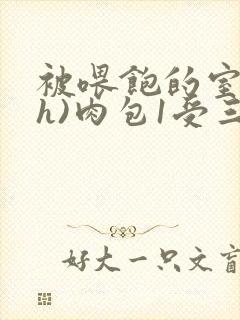 被喂飽的室
h)肉包1受三
好大一只文盲